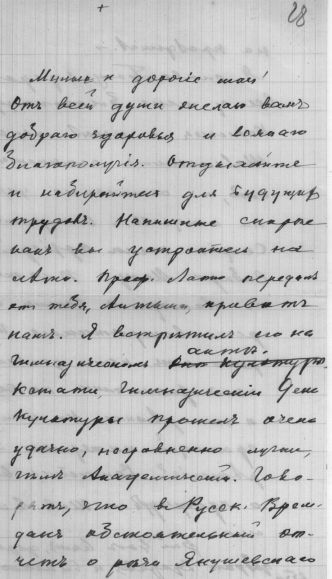 + 28
Милые и дорогіе мои!
Отъ всей души желаю вамъ
добраго здоровья и всякаго
благополучія. Отдыхайте
и набирайтесь для будущихъ
трудовъ. Напишите скорѣе
какъ вы устроитесь на
лѣто. Проф. Лаппо передалъ
отъ тебя, привѣтъ
намъ. Я встрѣтилъ его на
гимназическомъ актѣ.
Кстати, Гимназическій День
Культуры прошелъ очень
удачно, несравненно лучше,
чѣмъ Академическій. Гово-
рятъ, что въ Русск. Врем.
данъ обстоятельный от-
четъ о рѣчи Янушевскаго